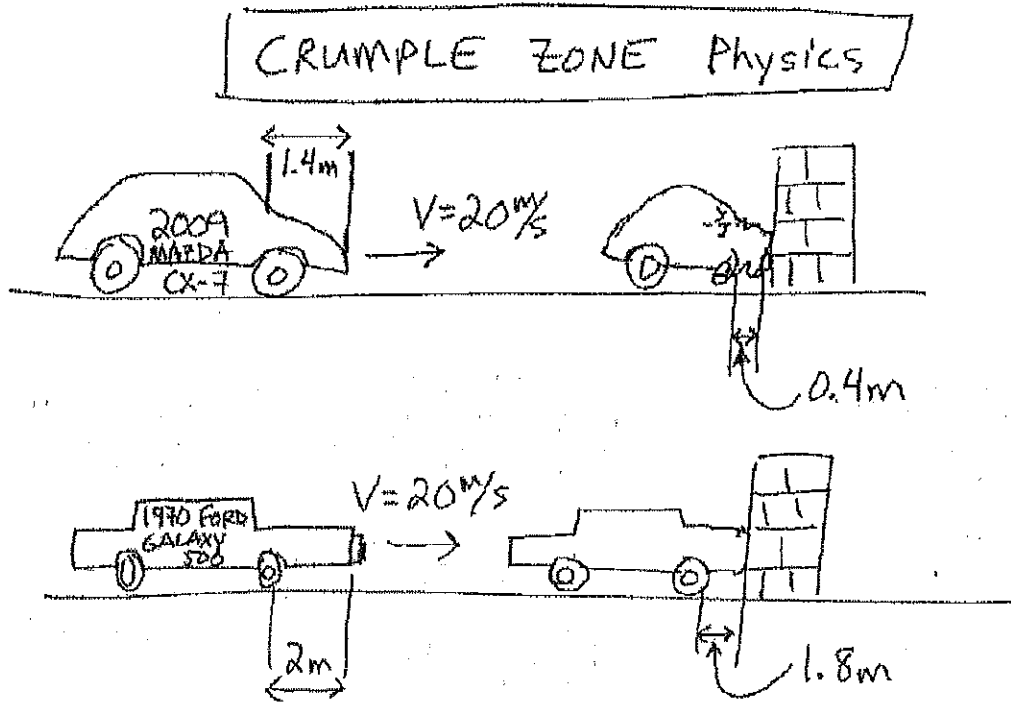 CRUMPLE ZONE Physics
1.4m
2009
MAZDA
CX-7
V=20 m/s
0.4m
1970 FORD
GALAXY
500
V=20 m/s
2m
1.8m